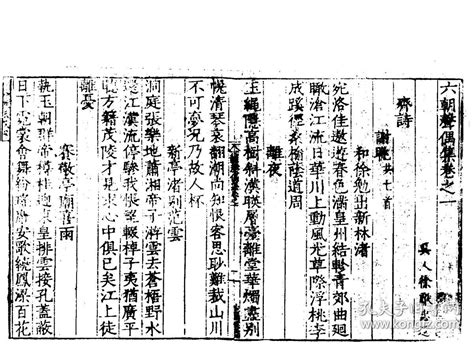 六朝聲偶集卷之一
吳人徐獻忠
齊詩
謝朓共七首
和徐勉出新林渚
宛洛佳遨遊春色滿皇州結軫青郊曲迴
瞰滄江流日華川上動風光草際浮桃李
成蹊徑桑榆蔭道周
離夜
玉繩隱高樹斜漢映層臺離堂華燭盡別
幌清琴哀翻潮尚知恨客思眇難裁山川
不可夢况乃故人杯
新亭渚別范雲
洞庭張樂地蕭湘帝子游雲去蒼梧野水
還江漢流停驂我悵望輟棹子夷猶廣平
聽方籍茂陵才見求心中俱已矣江上徒
離憂
賽敬亭廟喜雨
執玉朝群帝樽桂迎東皇排雲接孔蓋蔽
日下霓裳會舞紛瑤席安歌繞鳳梁百花